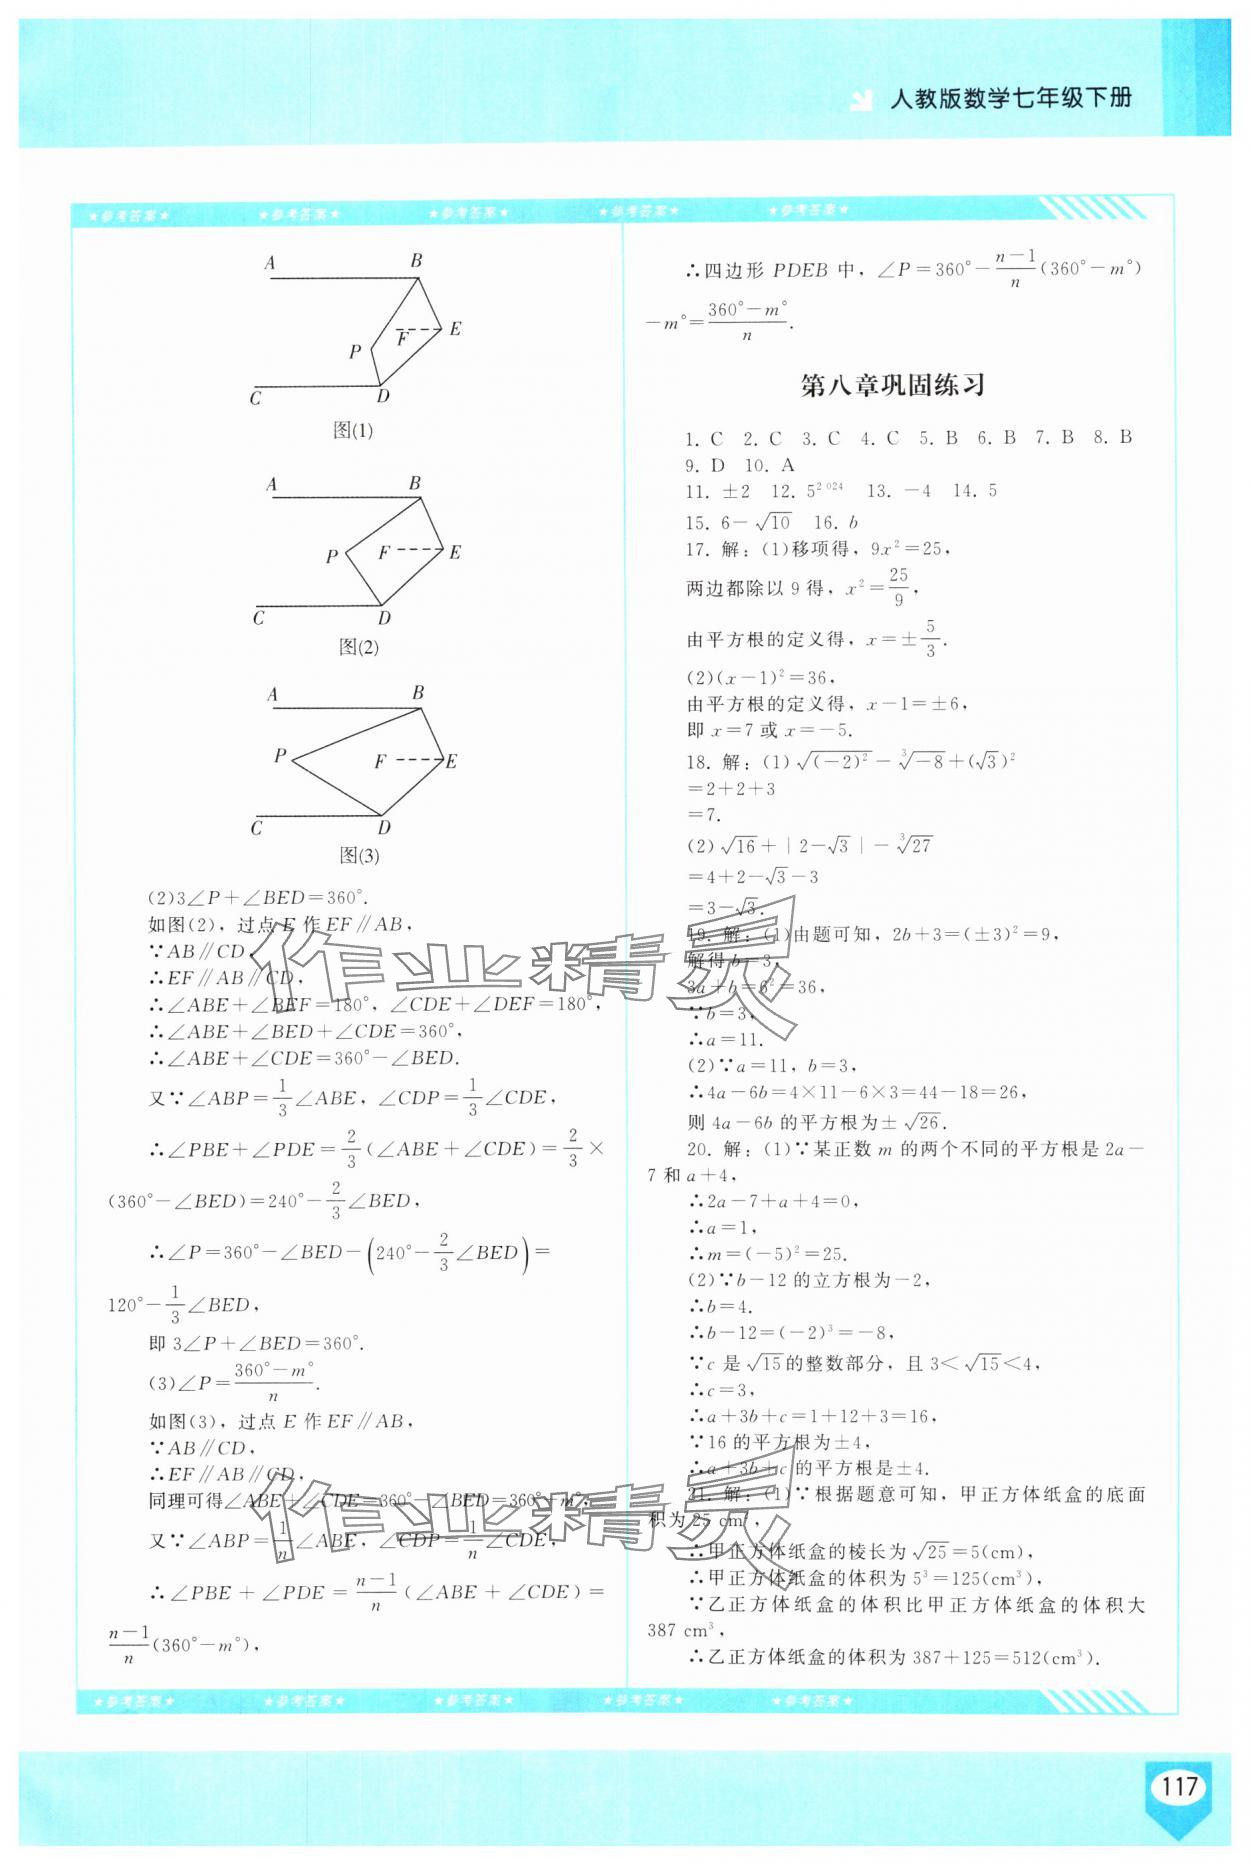 人教版数学七年级下册
★参考答案★ ★参考答案★ ★参考答案★ ★参考答案★ ★参考答案★
A B
F E
P
C D
图(1)
A B
P F E
C D
图(2)
A B
P F E
C D
图(3)
(2)3∠P+∠BED=360°.
如图(2)，过点 E 作 EF∥AB，
∵AB∥CD，
∴EF∥AB∥CD，
∴∠ABE+∠BEF=180°，∠CDE+∠DEF=180°，
∴∠ABE+∠BED+∠CDE=360°，
∴∠ABE+∠CDE=360°-∠BED.
又∵∠ABP=1/3∠ABE，∠CDP=1/3∠CDE，
∴∠PBE+∠PDE=2/3(∠ABE+∠CDE)=2/3×
(360°-∠BED)=240°-2/3∠BED，
∴∠P=360°-∠BED-(240°-2/3∠BED)=
120°-1/3∠BED，
即 3∠P+∠BED=360°.
(3)∠P=(360°-m°)/n.
如图(3)，过点 E 作 EF∥AB，
∵AB∥CD，
∴EF∥AB∥CD，
同理可得∠ABE+∠CDE=360°-∠BED=360°-m°，
又∵∠ABP=1/n∠ABE，∠CDP=1/n∠CDE，
∴∠PBE+∠PDE=(n-1)/n(∠ABE+∠CDE)=
(n-1)/n(360°-m°)，
∴四边形 PDEB 中，∠P=360°-(n-1)/n(360°-m°)
-m°=(360°-m°)/n.
第八章巩固练习
1. C 2. C 3. C 4. C 5. B 6. B 7. B 8. B
9. D 10. A
11. ±2 12. 5²⁰²⁴ 13. -4 14. 5
15. 6-√10 16. b
17. 解：(1)移项得，9x²=25，
两边都除以 9 得，x²=25/9，
由平方根的定义得，x=±5/3.
(2)(x-1)²=36，
由平方根的定义得，x-1=±6，
即 x=7 或 x=-5.
18. 解：(1)√(-2)²-∛-8+(√3)²
=2+2+3
=7.
(2)√16+|2-√3|-∛27
=4+2-√3-3
=3-√3.
19. 解：(1)由题可知，2b+3=(±3)²=9，
解得 b=3，
3a+b=6²=36，
∵b=3，
∴a=11.
(2)∵a=11，b=3，
∴4a-6b=4×11-6×3=44-18=26，
则 4a-6b 的平方根为±√26.
20. 解：(1)∵某正数 m 的两个不同的平方根是 2a-
7 和 a+4，
∴2a-7+a+4=0，
∴a=1，
∴m=(-5)²=25.
(2)∵b-12 的立方根为-2，
∴b=4.
∴b-12=(-2)³=-8，
∵c 是√15的整数部分，且 3<√15<4，
∴c=3，
∴a+3b+c=1+12+3=16，
∵16 的平方根为±4，
∴a+3b+c 的平方根是±4.
21. 解：(1)∵根据题意可知，甲正方体纸盒的底面
积为 25 cm²，
∴甲正方体纸盒的棱长为√25=5(cm)，
∴甲正方体纸盒的体积为 5³=125(cm³)，
∵乙正方体纸盒的体积比甲正方体纸盒的体积大
387 cm³，
∴乙正方体纸盒的体积为 387+125=512(cm³).
★参考答案★ ★参考答案★ ★参考答案★ ★参考答案★ ★参考答案★
117
作业精灵
作业精灵